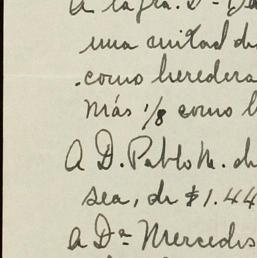 A la Sra. Dª
una mitad de
como heredera
más 1/8 como
A D. Pablo M. de
sea, de $1.44
a Dª Mercedes